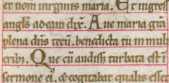 et nom̄ uirginis maria. Et ingress'
angl's ad eam dix̄. Aue maria gr̄a
plena dn̄s tecū, benedicta tu in muli
erib;. Que cū audiss; turbata est ī
sermone ei', et cogitabat qualis esset